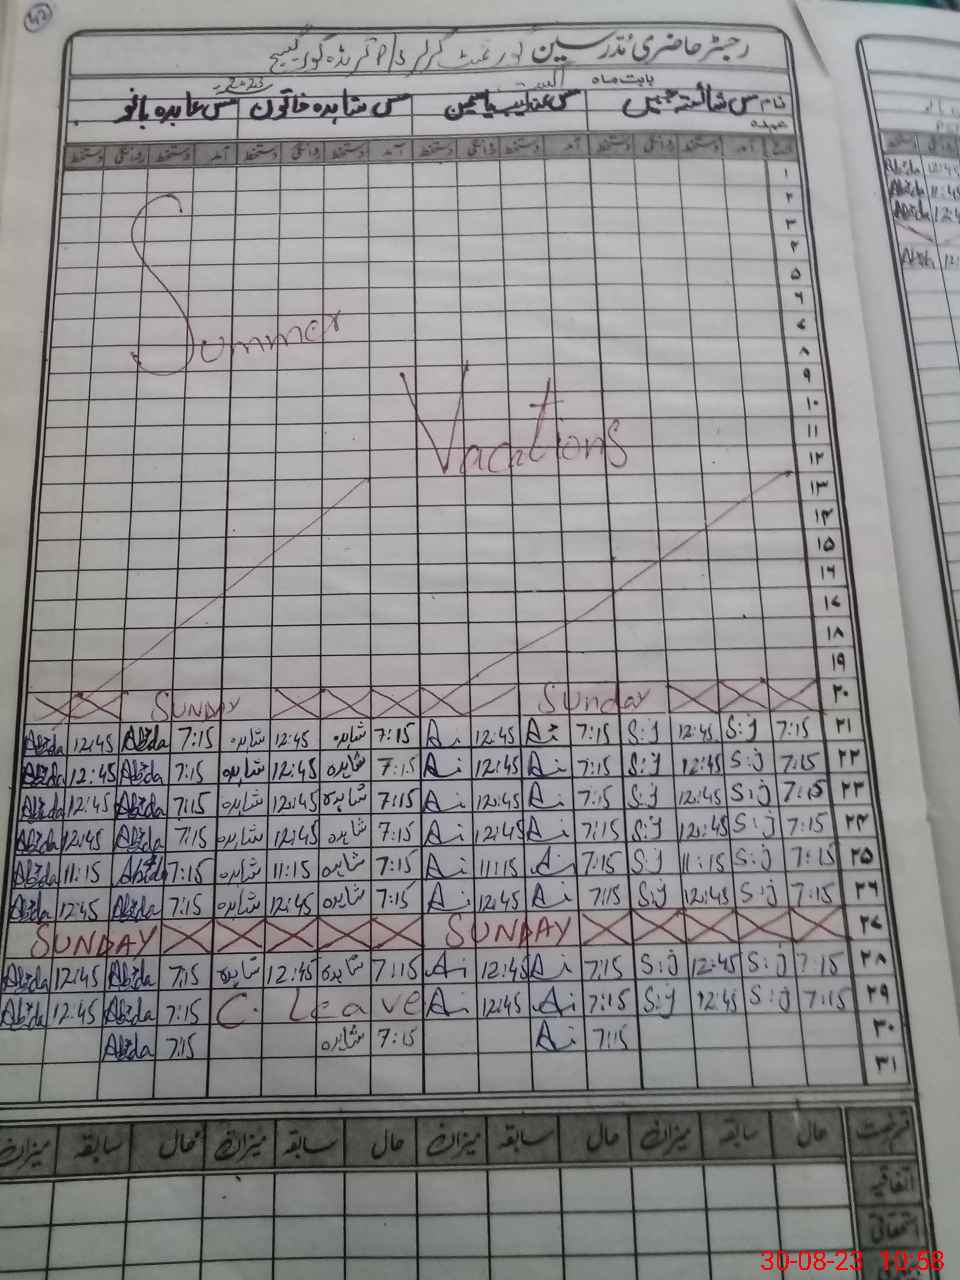 رجسٹر حاضری مدرسین گورنمنٹ گرلز
بابت ماہ اگست 2023
نام مس عندلیب یاسمین مس شاہدہ خاتون مس عابدہ بانو
عہدہ
تاریخ آمد دستخط روانگی دستخط آمد دستخط روانگی دستخط آمد دستخط روانگی دستخط آمد دستخط روانگی دستخط
۱
۲
۳
۴
۵
۶
۷
۸
۹
۱۰
۱۱
۱۲
۱۳
۱۴
۱۵
۱۶
۱۷
۱۸
۱۹
Summer
Vacations
۲۰ SUNDAY Sunday
۲۱ 7:15 S:J 12:45 S:J 7:15 Ai 12:45 Ai 7:15 شاہدہ 12:45 شاہدہ 7:15 Abida 12:45 Abida
۲۲ 7:15 S:J 12:45 S:J 7:15 Ai 12:45 Ai 7:15 شاہدہ 12:45 شاہدہ 7:15 Abida 12:45 Abida
۲۳ 7:15 S:J 12:45 S:J 7:15 Ai 12:45 Ai 7:15 شاہدہ 12:45 شاہدہ 7:15 Abida 12:45 Abida
۲۴ 7:15 S:J 12:45 S:J 7:15 Ai 12:45 Ai 7:15 شاہدہ 12:45 شاہدہ 7:15 Abida 12:45 Abida
۲۵ 7:15 S:J 11:15 S:J 7:15 Ai 11:15 Ai 7:15 شاہدہ 11:15 شاہدہ 7:15 Abida 11:15 Abida
۲۶ 7:15 S:J 12:45 S:J 7:15 Ai 12:45 Ai 7:15 شاہدہ 12:45 شاہدہ 7:15 Abida 12:45 Abida
۲۷ SUNDAY SUNDAY
۲۸ 7:15 S:J 12:45 S:J 7:15 Ai 12:45 Ai 7:15 شاہدہ 12:45 شاہدہ 7:15 Abida 12:45 Abida
۲۹ 7:15 S:J 12:45 S:J 7:15 Ai 12:45 Ai C. Leave 7:15 Abida 12:45 Abida
۳۰ 7:15 Ai 7:15 شاہدہ 7:15 Abida
۳۱
قسم رخصت حال سابقہ میزان حال سابقہ میزان حال سابقہ میزان حال سابقہ میزان
اتفاقیہ
استحقاقی
30-08-23 10:58